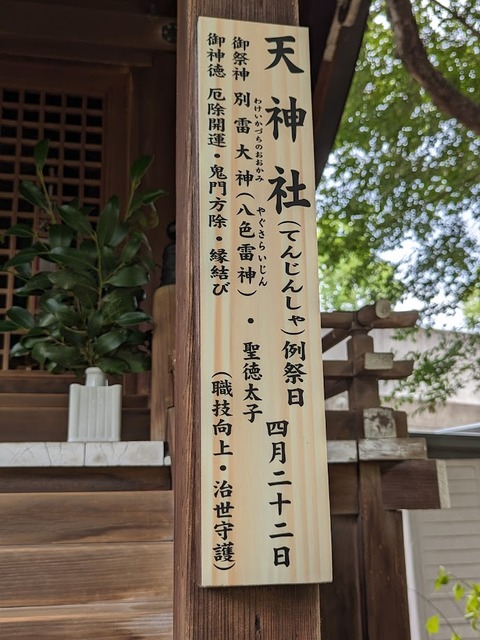 天神社(てんじんしゃ)例祭日 四月二十二日
わけいかづちのおおかみ やぐさらいじん
御祭神 別雷大神(八色雷神)・聖徳太子
御神徳 厄除開運・鬼門方除・縁結び (職技向上・治世守護)